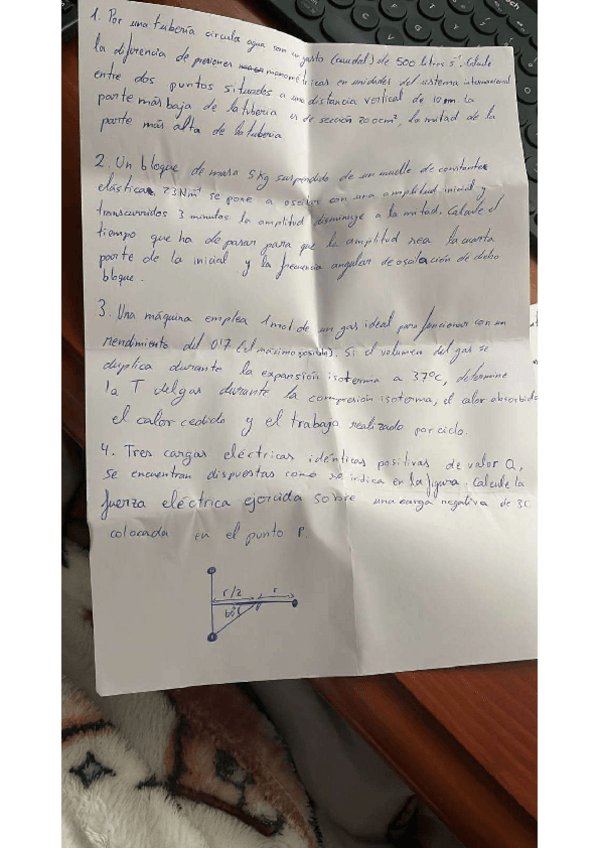 1. Por una tubería circula agua con un gasto (caudal) de 500 litros s⁻¹. Calcule
la diferencia de presiones manométricas en unidades del sistema internacional
entre dos puntos situados a una distancia vertical de 10 m. La
parte más baja de la tubería es de sección 200 cm², la mitad de la
parte más alta de la tubería
2. Un bloque de masa 5 Kg suspendido de un muelle de constante
elástica 73 Nm⁻¹ se pone a oscilar con una amplitud inicial y
transcurridos 3 minutos la amplitud disminuye a la mitad. Calcule el
tiempo que ha de pasar para que la amplitud sea la cuarta
parte de la inicial y la frecuencia angular de oscilación de dicho
bloque.
3. Una máquina emplea 1 mol de un gas ideal para funcionar con un
rendimiento del 0'7 (el máximo posible). Si el volumen del gas se
duplica durante la expansión isoterma a 37ºC, determine
la T del gas durante la compresión isoterma, el calor absorbido
el calor cedido y el trabajo realizado por ciclo.
4. Tres cargas eléctricas idénticas positivas de valor Q,
se encuentran dispuestas como se indica en la figura. Calcule la
fuerza eléctrica ejercida sobre una carga negativa de 3C
colocada en el punto P.
r/2 r
60º